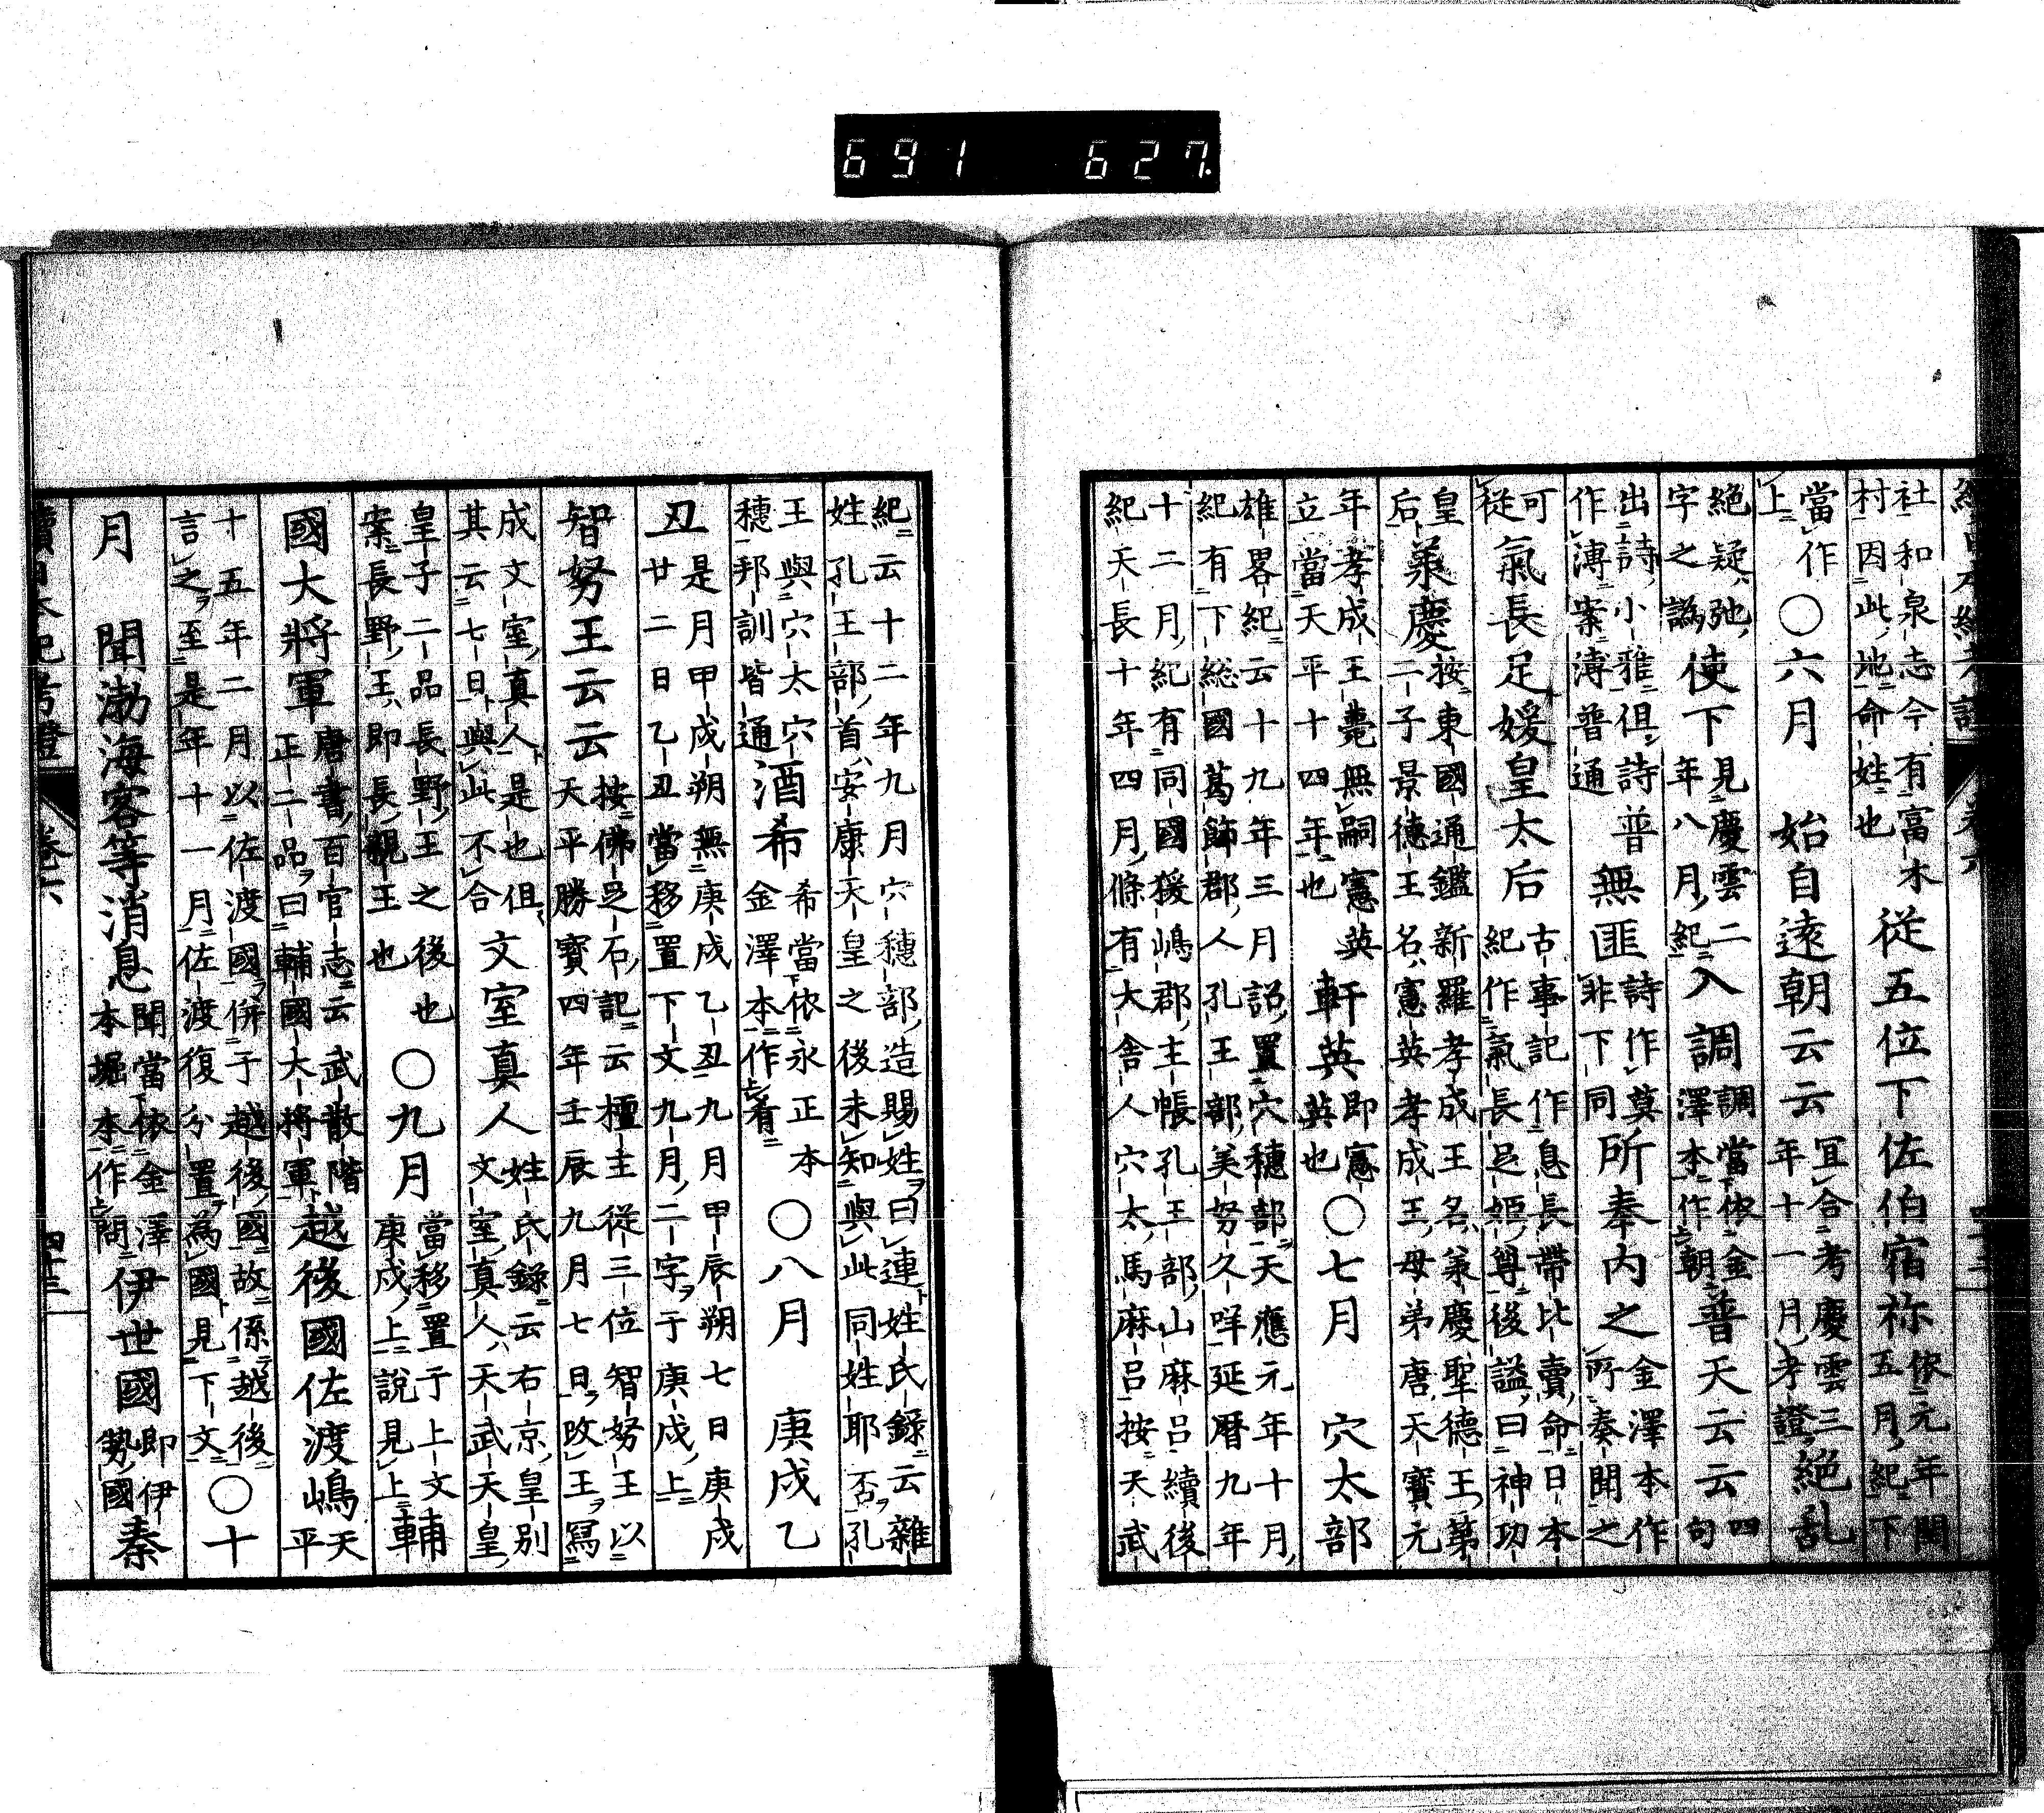 續日本紀考證 卷六 四十三
社和泉志今有富木村因此地命姓也從五位下佐伯宿祢依元年閏五月紀下
當作上○六月 始自遠朝云云宜合考慶雲三年十一月考證絕乱
絕疑弛字之譌使下見慶雲二年八月紀入調調當依金澤本作朝普天云云四句
出詩小雅但詩普作溥案溥普通無匪詩作莫非下同所奉内之金澤本作所奏聞之
可從氣長足媛皇太后古事記作息長帶比賣命日本紀作氣長足姬尊後謚曰神功
皇后承慶按東國通鑑新羅孝成王名承慶聖德王第二子景德王名憲英孝成王母弟唐天寶元
年孝成王薨無嗣憲英立當天平十四年也軒英即憲英也○七月 穴太部
雄畧紀云十九年三月詔置穴穗部天應元年十月紀有下総國葛餝郡人孔王部美努久咩延暦九年
十二月紀有同國猨嶋郡主帳孔王部山麻呂續後紀天長十年四月條有大舎人穴太馬麻呂按天武
紀云十二年九月穴穗部造賜姓曰連姓氏録云雜姓孔王部首安康天皇之後未知與此同姓耶否孔
王與穴太穴穗邦訓皆通酒希希當依永正本金澤本作肴○八月 庚戌乙
丑是月甲戌朔無庚戌乙丑九月甲辰朔七日庚戌廿二日乙丑當移置下文九月二字于庚戌上
智努王云云按佛足石記云檀主從三位智努王以天平勝寶四年壬辰九月七日改王冩
成文室真人是也但其云七日與此不合文室真人姓氏録云右京皇別文室真人天武天皇
皇子二品長野王之後也案長野王即長親王也○九月當移置于上文庚戌上説見上輔
國大將軍唐書百官志云武散階正二品曰輔國大將軍越後國佐渡嶋天平
十五年二月以佐渡國併于越後國故係越後言之至是年十一月佐渡復分置為國見下文○十
月 聞渤海客等消息聞當依金澤本堀本作問伊世國即伊勢國秦
續日本紀考證 卷六 四十三
691 627